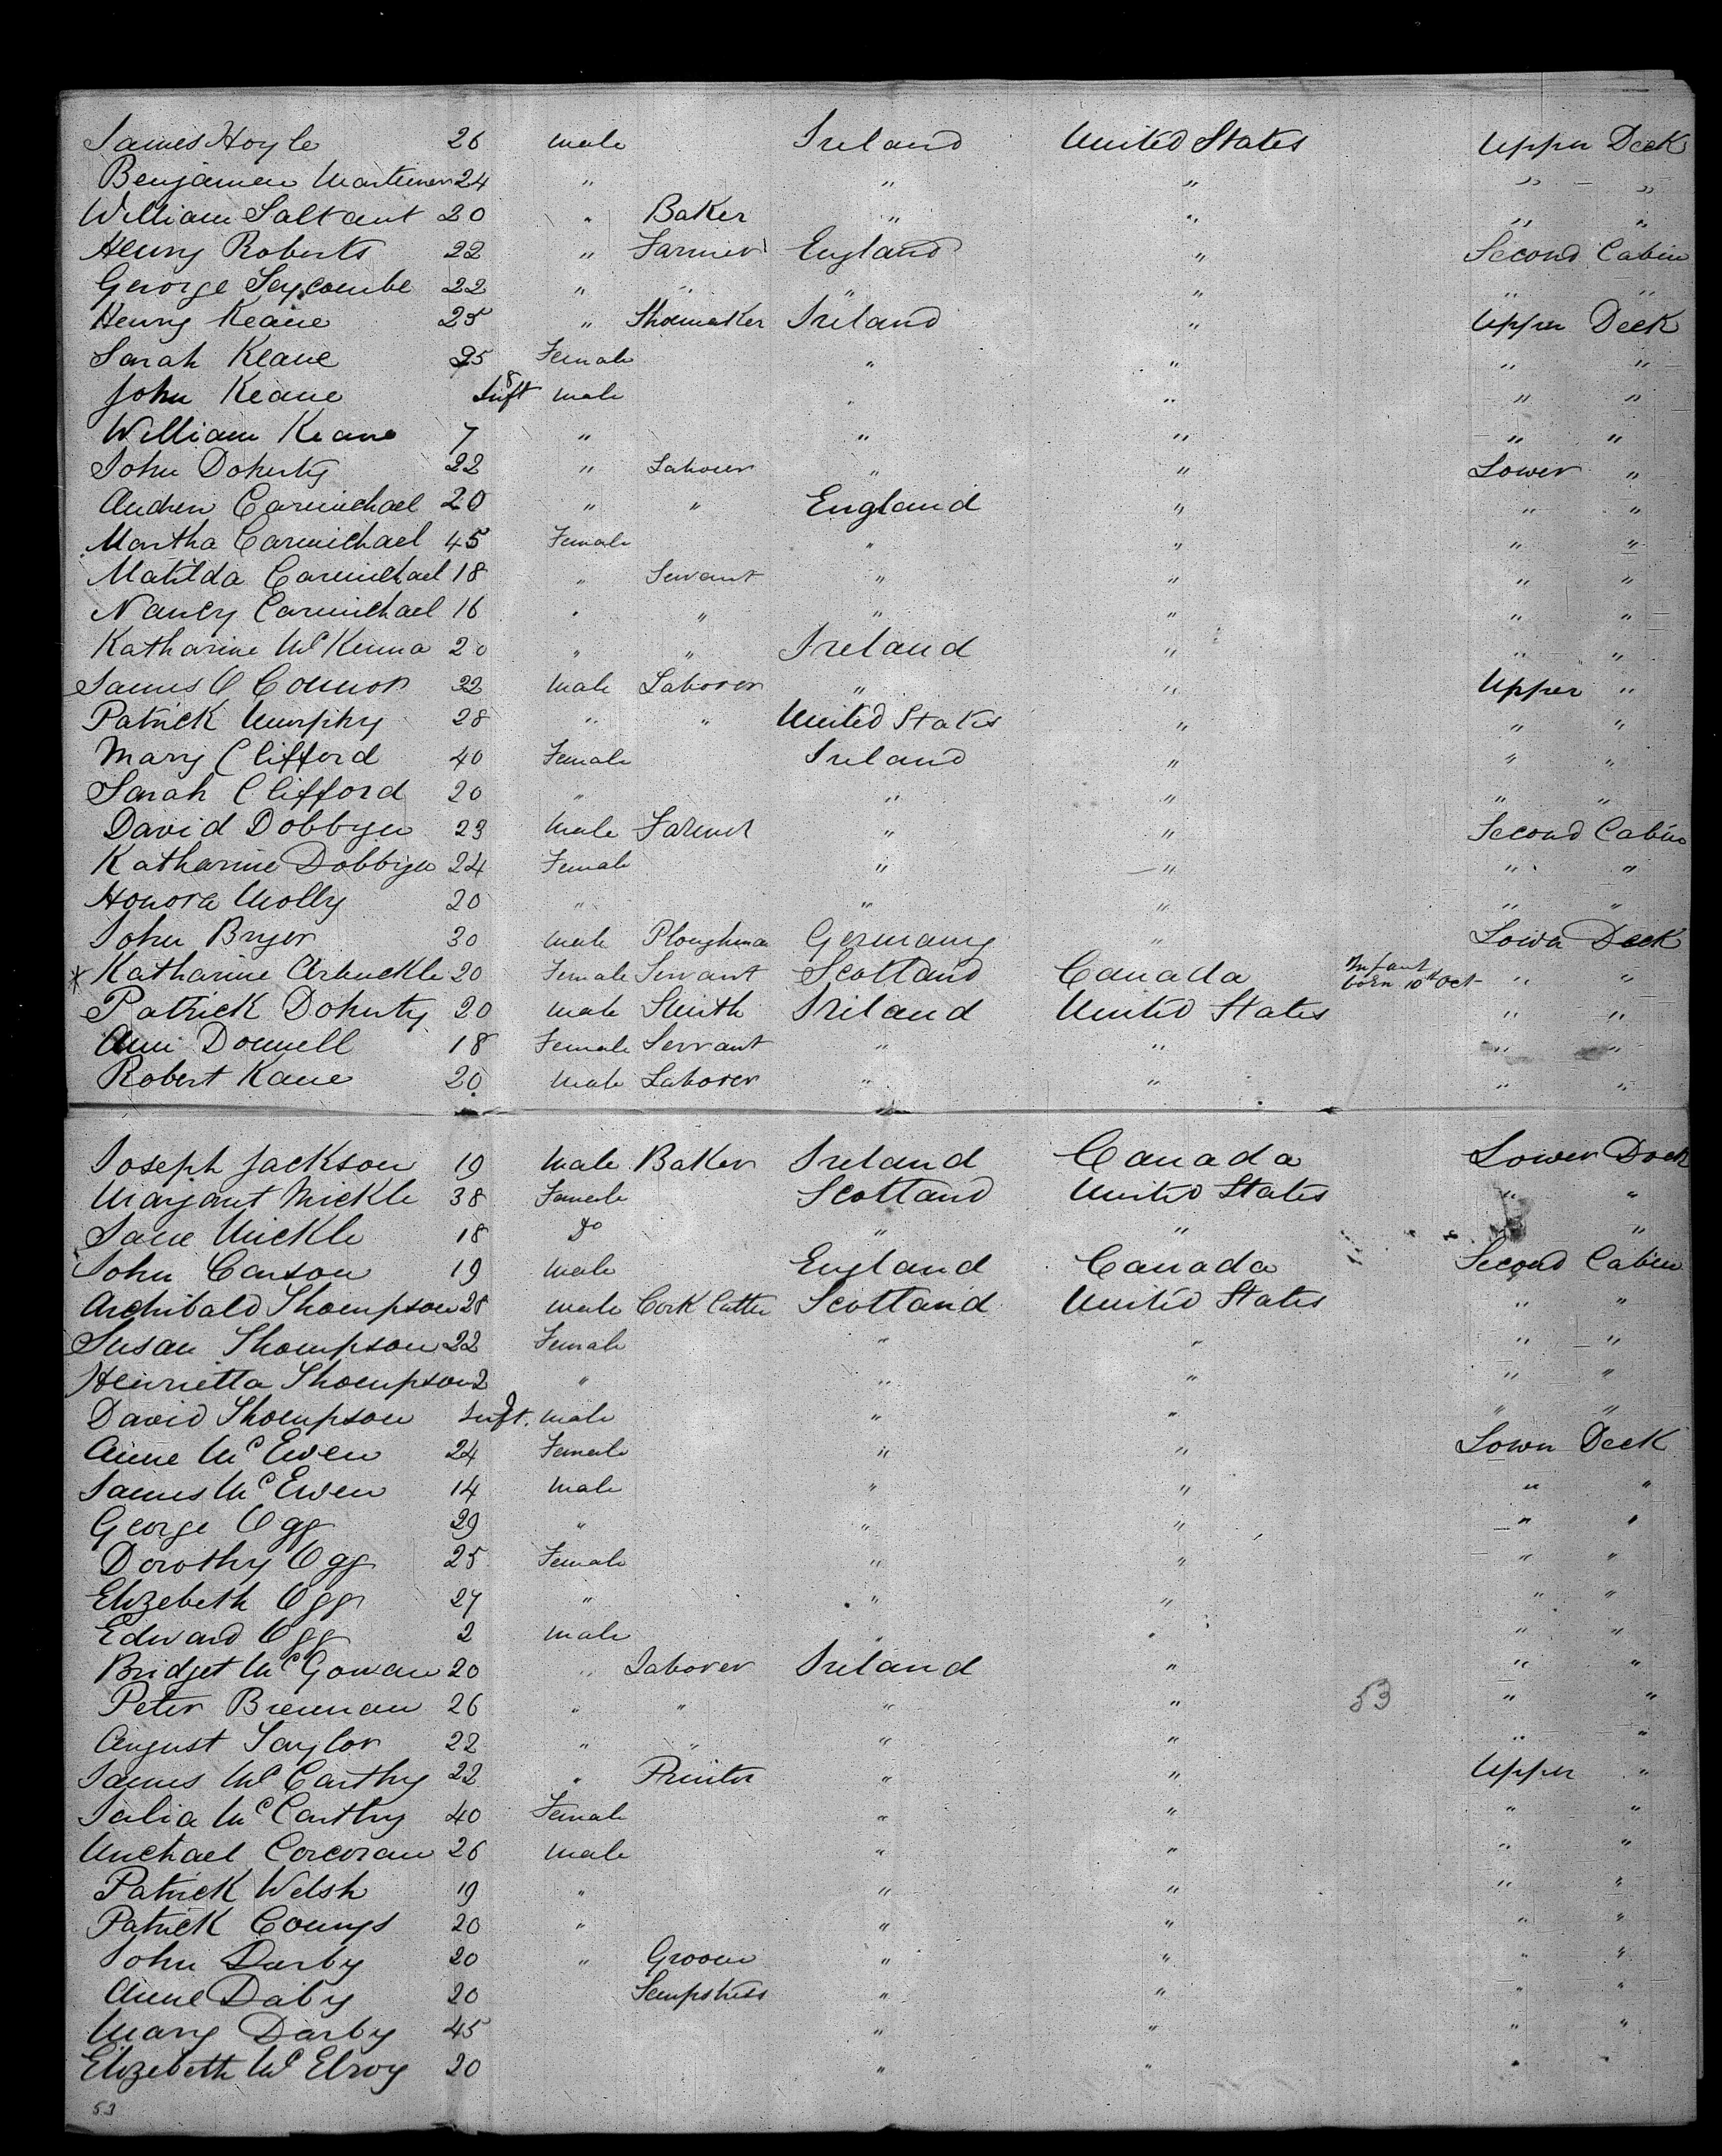 James Hoyle 26 male Ireland United States Upper Deck
Benjamen Martimer 24 " " " " "
William Saltant 20 " Baker " " " "
Henry Roberts 22 " Farmer England " Second Cabin
George Seycombe 22 " " " " " "
Henry Keane 25 " Shoemaker Ireland " Upper Deck
Sarah Keane 25 Female " " " "
John Keane Inft male " " " "
William Keane 7 " " " " "
John Doherty 22 " Labourer " " Lower "
Andrew Carmichael 20 " " England " " "
Martha Carmichael 45 Female " " " "
Matilda Carmichael 18 " Servant " " " "
Nancy Carmichael 16 " " " " " "
Katharine McKenna 20 " " Ireland " " "
James O Connor 22 male Laborer " " Upper "
Patrick Murphy 28 " " United States " " "
Mary Clifford 40 Female Ireland " " "
Sarah Clifford 20 " " " " "
David Dobbyn 23 Male Farmer " " Second Cabin
Katharine Dobbyn 24 Female " " " "
Honora Molly 20 " " " " "
John Bryer 30 male Ploughma Germany " Lower Deck
* Katharine Arbuckle 20 Female Servant Scotland Canada Infant born 10th Oct " "
Patrick Doherty 20 male Smith Ireland United States " "
Ann Donnell 18 Female Servant " " " "
Robert Kane 20 male Laborer " " " "
Joseph Jackson 19 male Baker Ireland Canada Lower Deck
Margaret Mickle 38 Female Scotland United States " "
Jane Mickle 18 do " " " "
John Carson 19 male England Canada Second Cabin
Archibald Thompson 28 male Cork Cutter Scotland United States " "
Susan Thompson 22 Female " " " "
Henrietta Thompson 2 " " " " "
David Thompson Inft. male " " " "
Anne McEwen 24 Female " " Lower Deck
James McEwen 14 male " " " "
George Ogg 29 " " " " "
Dorothy Ogg 25 Female " " " "
Elizebeth Ogg 27 " " " " "
Edward Ogg 2 male " " " "
Bridget McGowan 20 " Laborer Ireland " " "
Peter Brennan 26 " " " " 53 " "
August Taylor 22 " " " " " "
James McCarthy 22 " Printer " " Upper "
Julia McCarthy 40 Female " " " "
Michael Corcoran 26 male " " " "
Patrick Welsh 19 " " " " "
Patrick Comys 20 " " " " "
John Darby 20 " Groom " " " "
Anne Daby 20 Sempstress " " " "
Mary Darby 45 " " " "
Elizebeth McElroy 20 " " " "
53